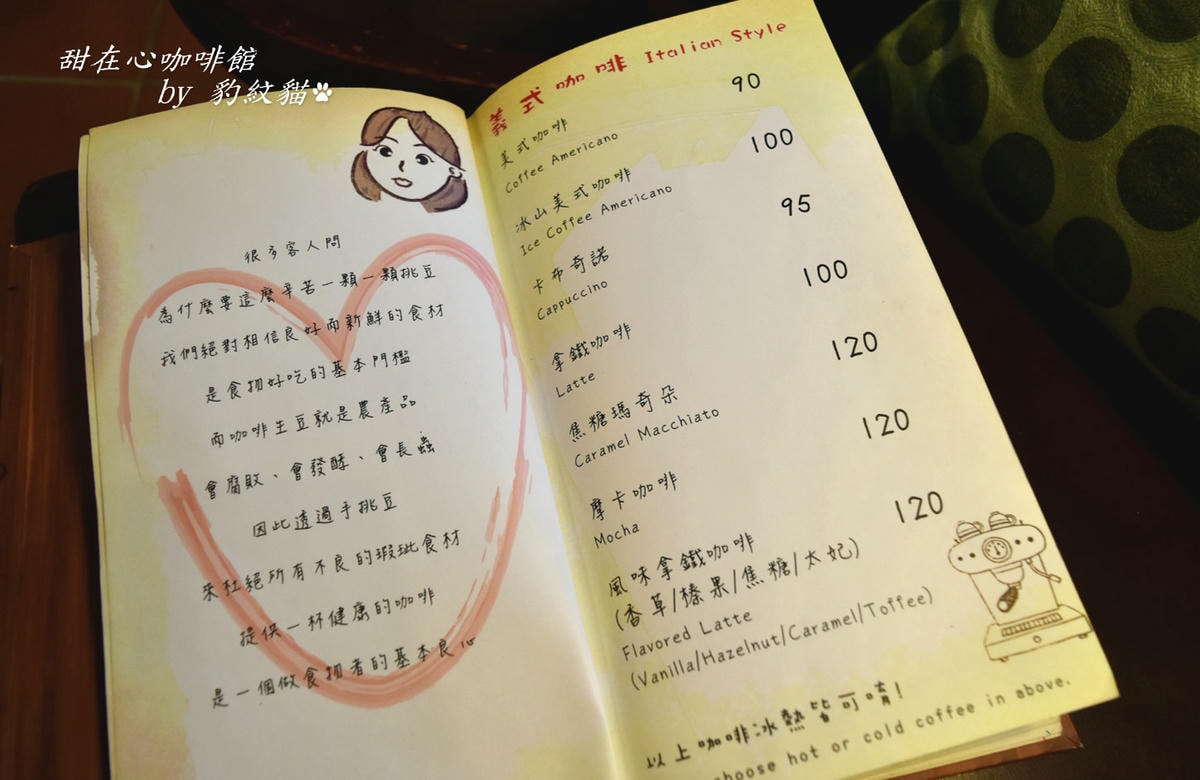 甜在心咖啡館
by 豹紋貓
很多客人問
為什麼要這麼辛苦一顆一顆挑豆
我們絕對相信良好而新鮮的食材
是食物好吃的基本門檻
而咖啡生豆就是農產品
會腐敗、會發酵、會長蟲
因此透過手挑豆
來杜絕所有不良的瑕玼食材
提供一杯健康的咖啡
是一個做食物者的基本良心
義式咖啡 Italian Style
美式咖啡 90
Coffee Americano
冰山美式咖啡 100
Ice Coffee Americano
卡布奇諾 95
Cappuccino
拿鐵咖啡 100
Latte
焦糖瑪奇朵 120
Caramel Macchiato
摩卡咖啡 120
Mocha
風味拿鐵咖啡 120
(香草/榛果/焦糖/太妃)
Flavored Latte
(Vanilla/Hazelnut/Caramel/Toffee)
以上咖啡冰熱皆可唷!
choose hot or cold coffee in above.